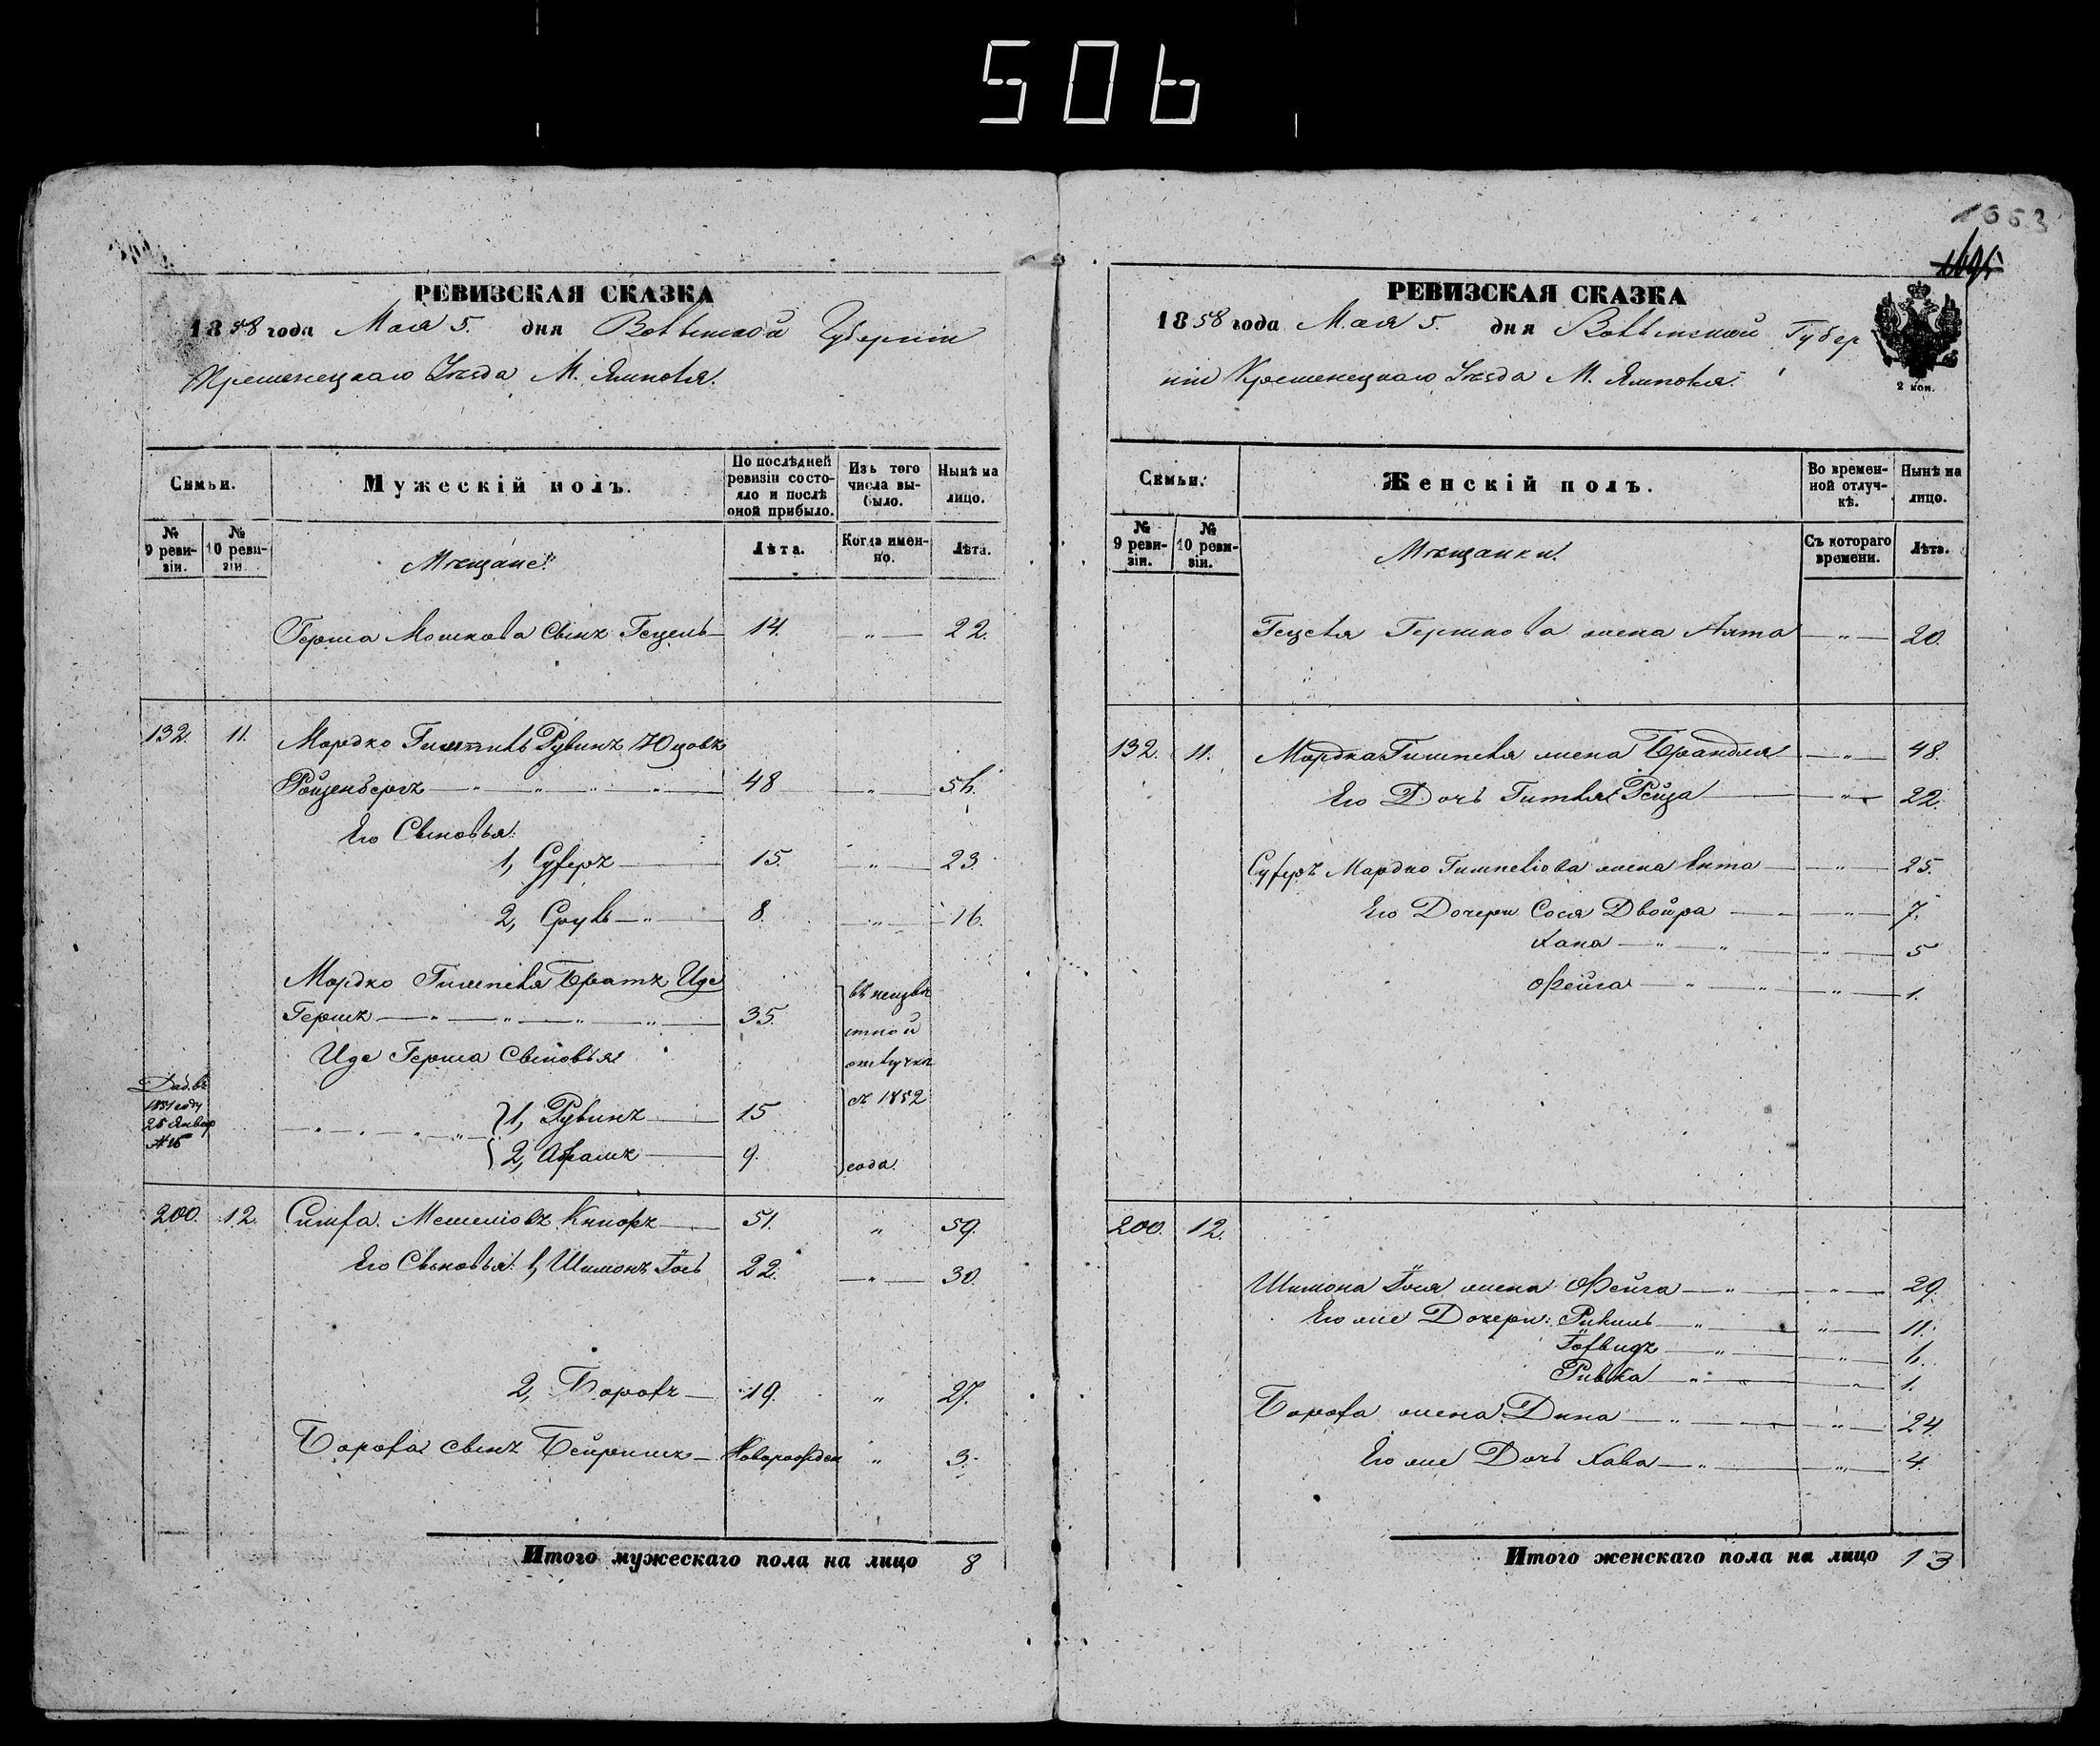 506
1663
РЕВИЗСКАЯ СКАЗКА
1858 года Мая 5. дня Волынской Губерніи
Кременецкаго Уѣзда М. Ямполя.
Семьи.
Мужескій полъ.
По послѣдней ревизіи состояло и послѣ оной прибыло.
Изъ того числа выбыло.
Нынѣ на лицо.
№ 9 ревизіи.
№ 10 ревизіи.
Мѣщане:
Лѣта.
Когда именно.
Лѣта.
Герша Мошкова сынъ Гецель 14. " 22.
132. 11. Мордко Гимпель Рувинъ Юцовъ
Ройзенбергъ 48 " 56.
Его Сыновья:
1, Суферъ 15. " 23.
2, Сруль 8. " 16.
Мордко Гимпеля Братъ Иде
Гершъ 35.
Иде Герша Сыновья
1, Рувинъ 15
2, Абрамъ 9.
въ неизвѣ
стной
отлучкѣ
съ 1852
года.
Доб. въ
1851 году
25 Январ
№16
200. 12. Симха Мешелiовъ Кнюхъ 51. " 59.
Его Сыновья: 1, Шимонъ Іось 22. " 30.
2, Борохъ 19. " 27.
Бороха сынъ Бейришъ Новорожден " 3.
Итого мужескаго пола на лицо 8
РЕВИЗСКАЯ СКАЗКА
1858 года Мая 5. дня Волынской Губер
ніи Кременецкаго Уѣзда М. Ямполя.
2 коп.
Семьи.
Женскій полъ.
Во временной отлучкѣ.
Нынѣ на лицо.
№ 9 ревизіи.
№ 10 ревизіи.
Мѣщанки:
Съ котораго времени.
Лѣта.
Гецеля Гершкова жена Анта " 20.
132. 11. Мордка Гимпеля жена Брандля " 48.
Его Дочь Гитля Рейза " 22.
Суферъ Мордко Гимпелiова жена Ента " 25.
Его Дочери Сося Двойра " 7.
Хана " 5
Фейга " 1.
200. 12.
Шимона Іося жена Фейга " 29.
Его же Дочери: Рикиль " 11.
Ривка " 1.
Бороха жена Дина " 24.
Его же Дочь Хава " 4.
Итого женскаго пола на лицо 13